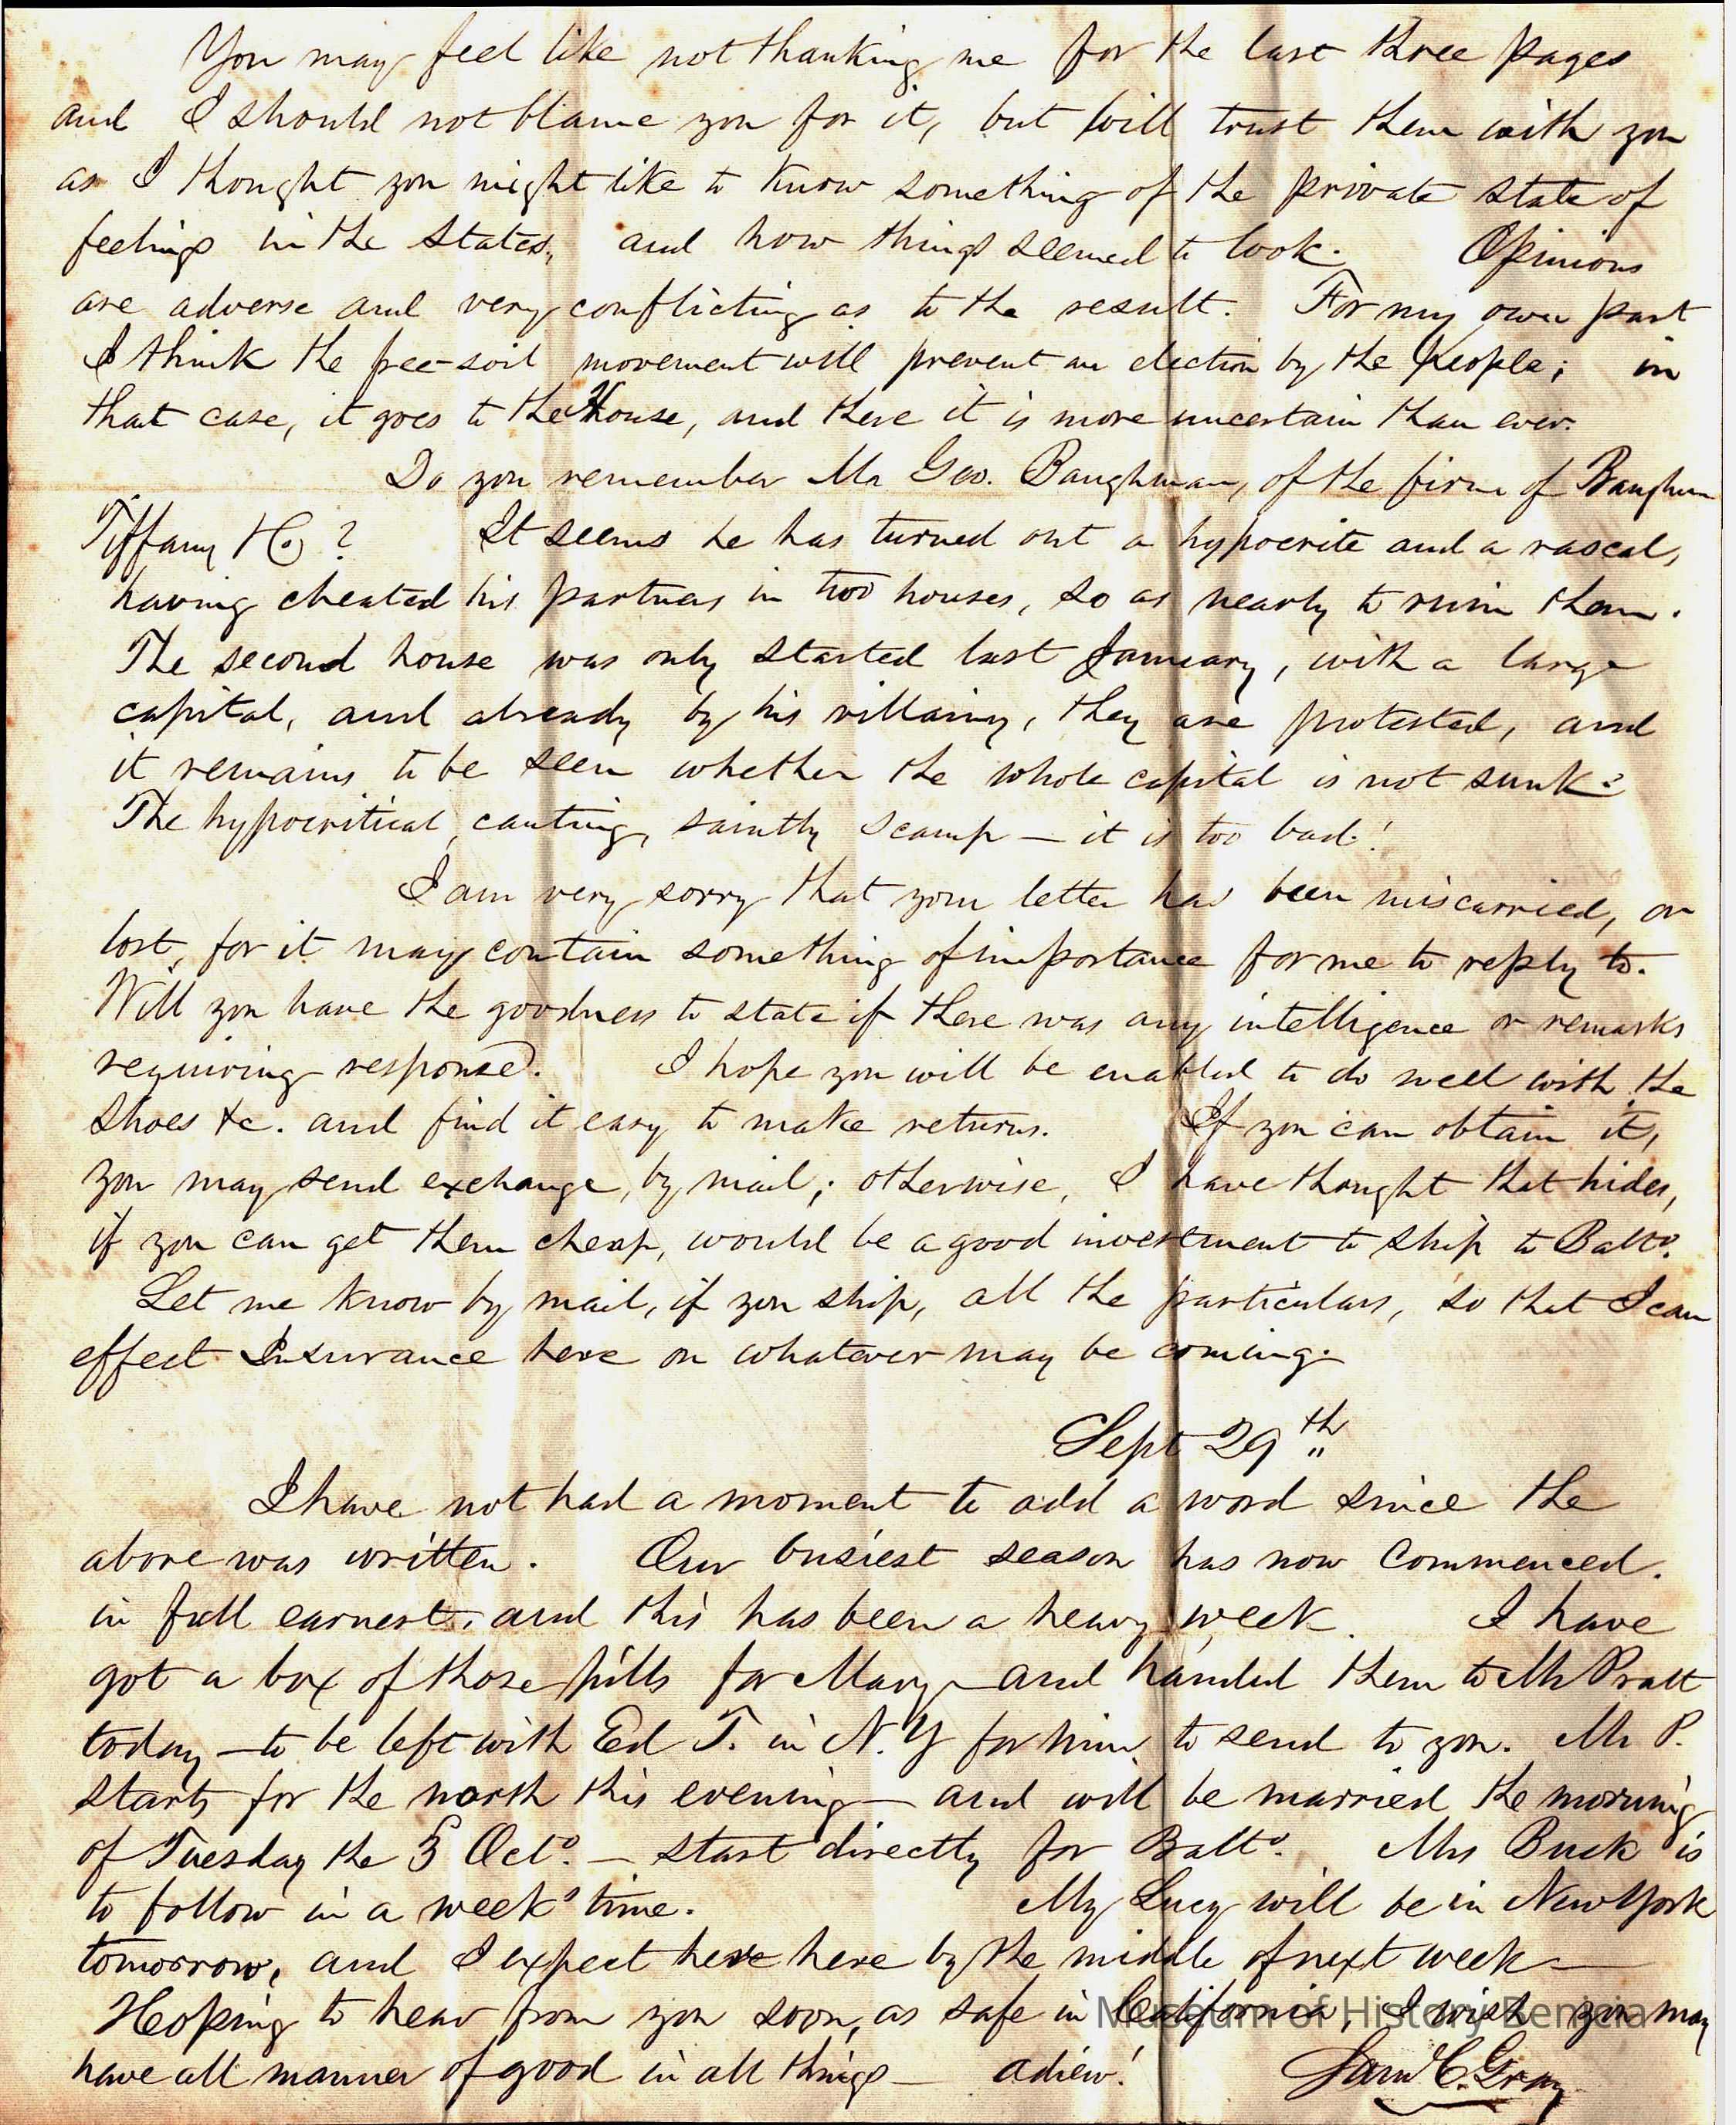 You may feel like not thanking me for the last three pages
and I should not blame you for it, but will trust them with you
as I thought you might like to know something of the private state of
feelings in the States, and how things seemed to look. Opinions
are adverse and very conflicting as to the result. For my own part
I think the free-soil movement will prevent an election by the people; in
that case, it goes to the House, and there it is more uncertain than ever.
Do you remember Mr Geo. Baughman, of the firm of Baughman
Tiffany & Co ? It seems he has turned out a hypocrite and a rascal,
having cheated his partners in two houses, so as nearly to ruin them.
The second house was only started last January, with a large
capital, and already by his villainy, they are protested, and
it remains to be seen whether the whole capital is not sunk?
The hypocritical, canting, saintly scamp — it is too bad!
I am very sorry that your letter has been miscarried, or
lost, for it may contain something of importance for me to reply to.
Will you have the goodness to state if there was any intelligence or remarks
requiring response. I hope you will be enabled to do well with the
shoes &c. and find it easy to make returns. If you can obtain it,
you may send exchange, by mail; otherwise, I have thought that hides,
if you can get them cheap, would be a good investment to ship to Balto.
Let me know by mail, if you ship, all the particulars, so that I can
effect Insurance here on whatever may be coming.
Sept 29th
I have not had a moment to add a word since the
above was written. Our busiest season has now commenced.
in full earnest, and this has been a heavy week. I have
got a box of those pills for Mary — and handed them to Mr Pratt
today — to be left with Ed T. in N.Y for him to send to you. Mr P.
starts for the north this evening — and will be married the morning
of Tuesday the 3 Octo. — start directly for Balto. Mrs Buck is
to follow in a week's time. My Lucy will be in New York
tomorrow, and I expect here here by the middle of next week —
Hoping to hear from you soon, as safe in California, I wish you may
have all manner of good in all things — adieu!
Saml C. Gray
Museum of History Benicia